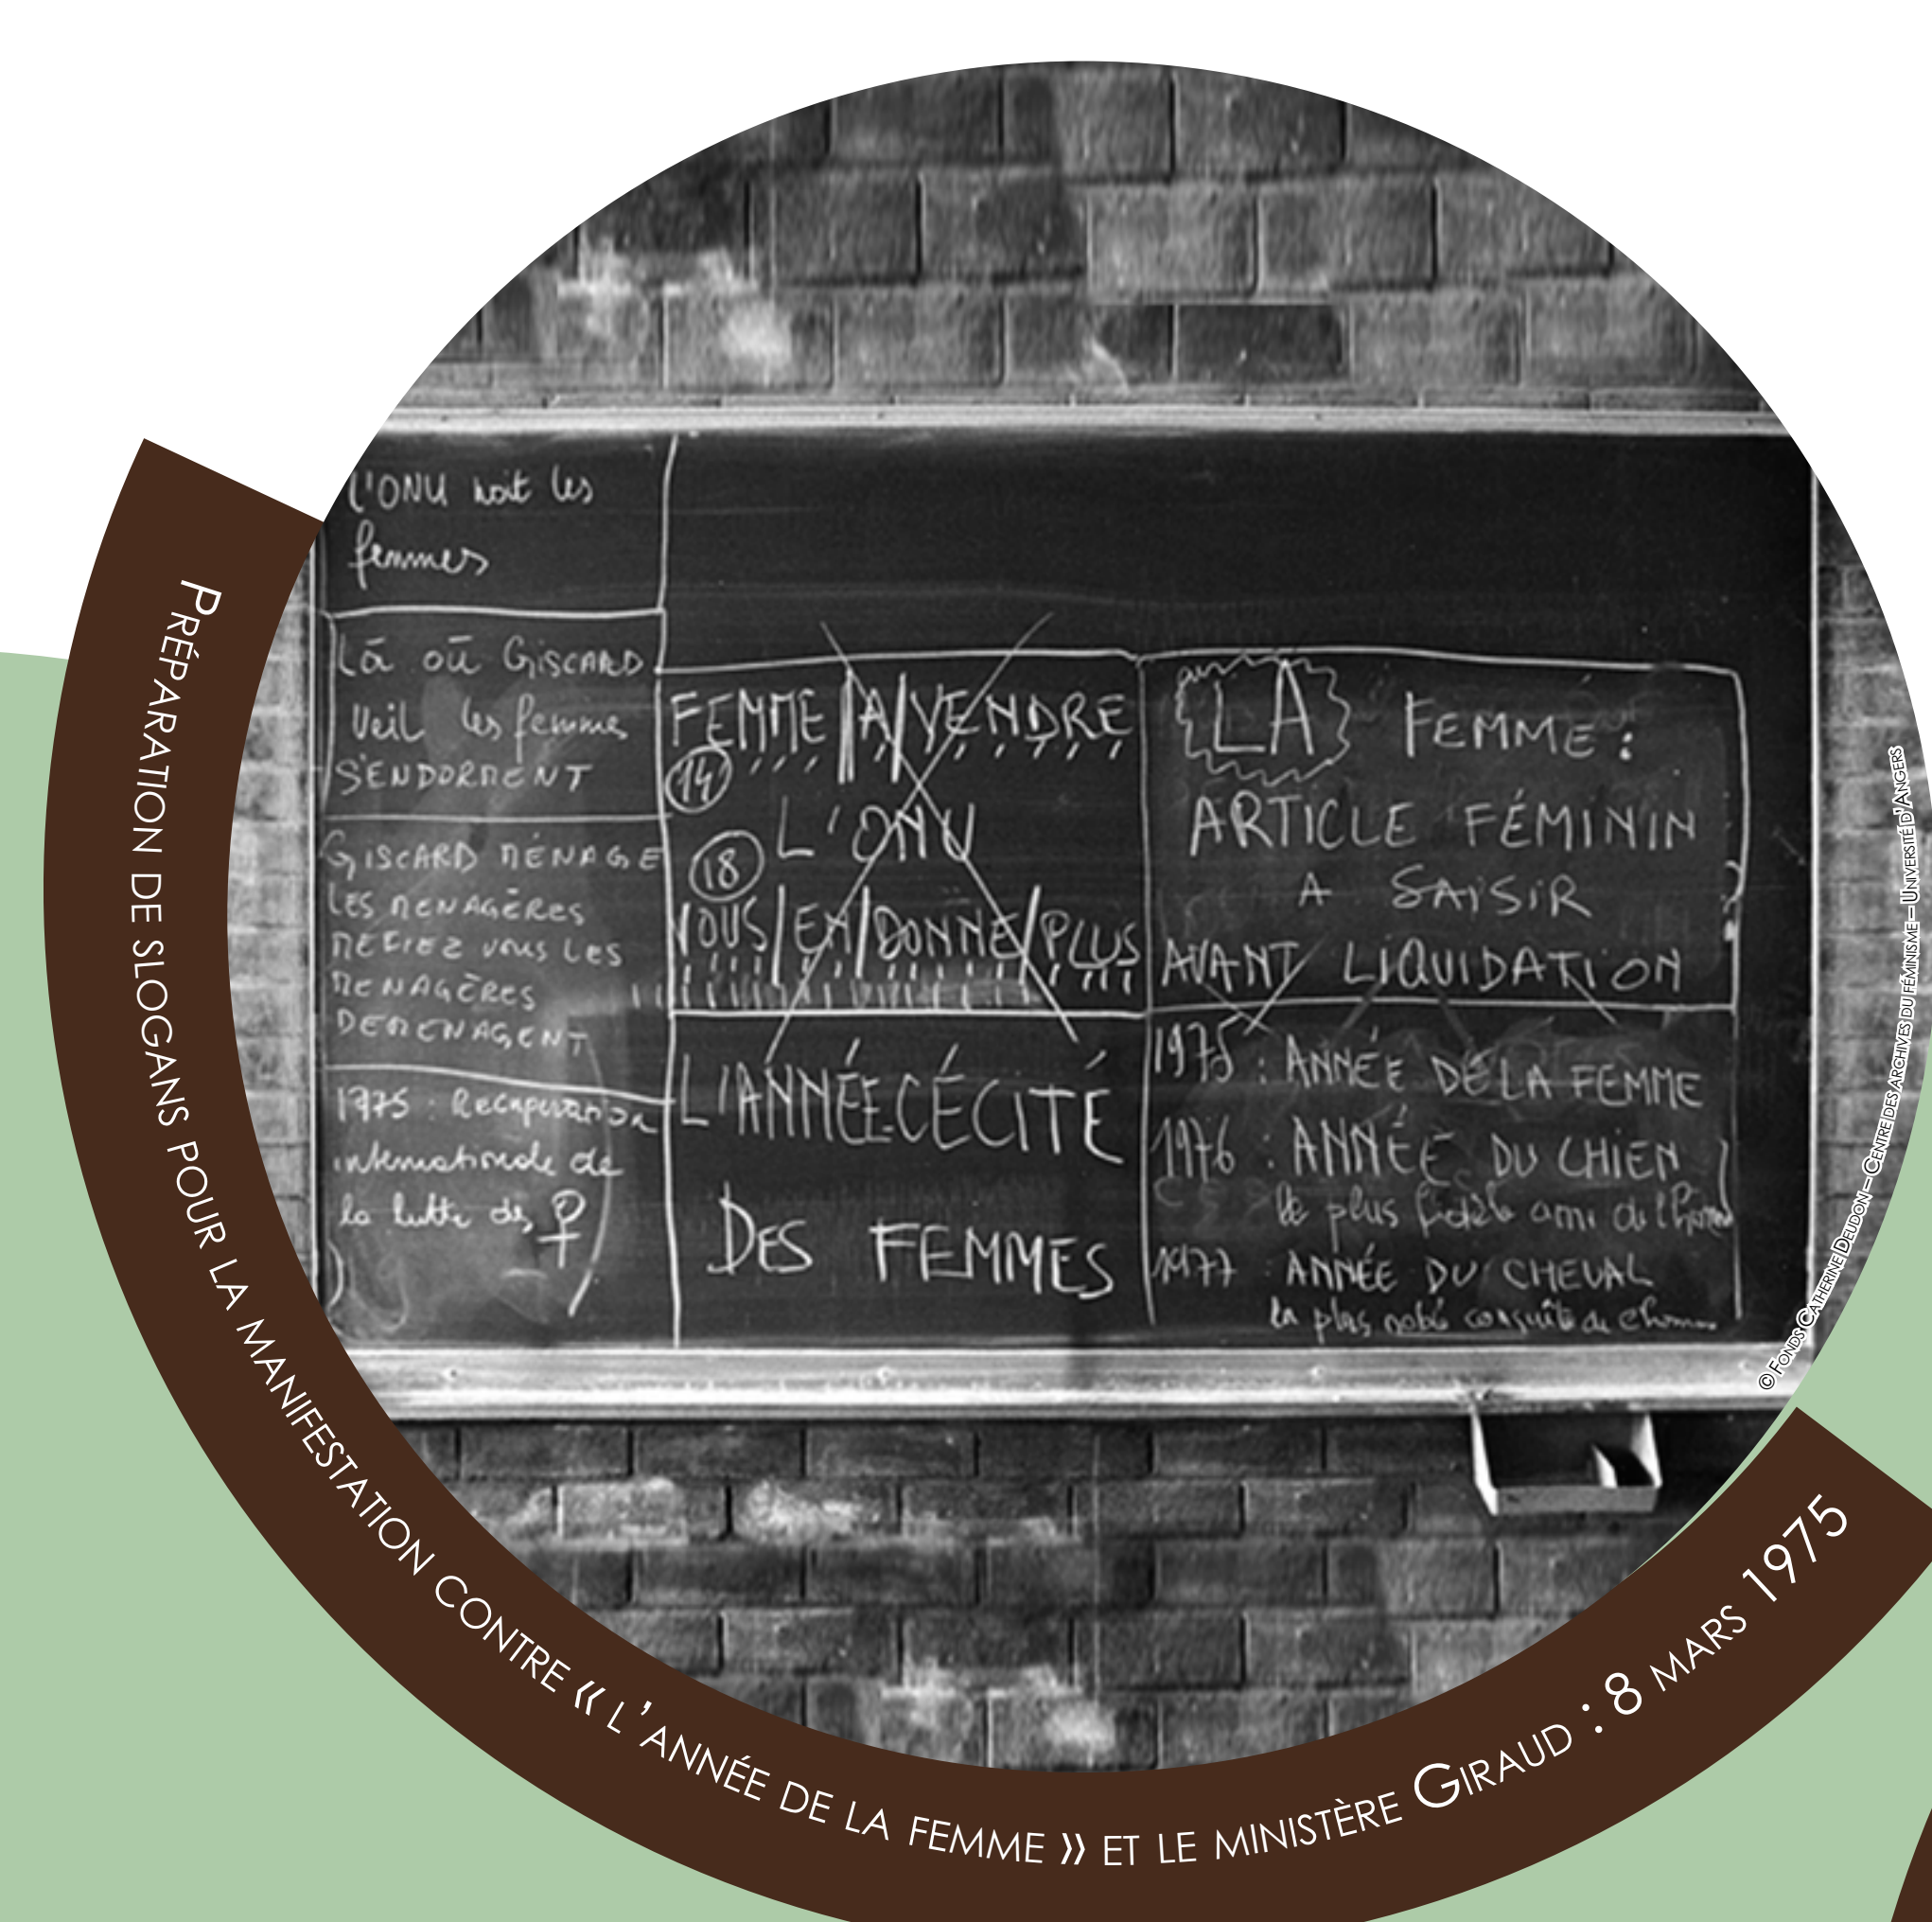 L'ONU noit les
femmes
Là où GISCARD
Veil les femmes
S'ENDORMENT
GISCARD MÉNAGE
LES MENAGÈRES
MEFIEZ VOUS LES
MENAGÈRES
DEMENAGENT
1975 : Recuperation
internationale de
la lutte des ♀
FEMME/A/VENDRE
14
L'ONU
18
VOUS/EN/DONNE/PLUS
L'ANNÉE-CÉCITÉ
DES FEMMES
LA FEMME :
ARTICLE FÉMININ
A SAISIR
AVANT LIQUIDATION
1975 : ANNÉE DE LA FEMME
1976 : ANNÉE DU CHIEN
le plus fidèle ami de l'homme
1977 : ANNÉE DU CHEVAL
la plus noble conquête de l'homme
© FONDS CATHERINE DEUDON – CENTRE DES ARCHIVES DU FÉMINISME – UNIVERSITÉ D'ANGERS
PRÉPARATION DE SLOGANS POUR LA MANIFESTATION CONTRE « L'ANNÉE DE LA FEMME » ET LE MINISTÈRE GIRAUD : 8 MARS 1975